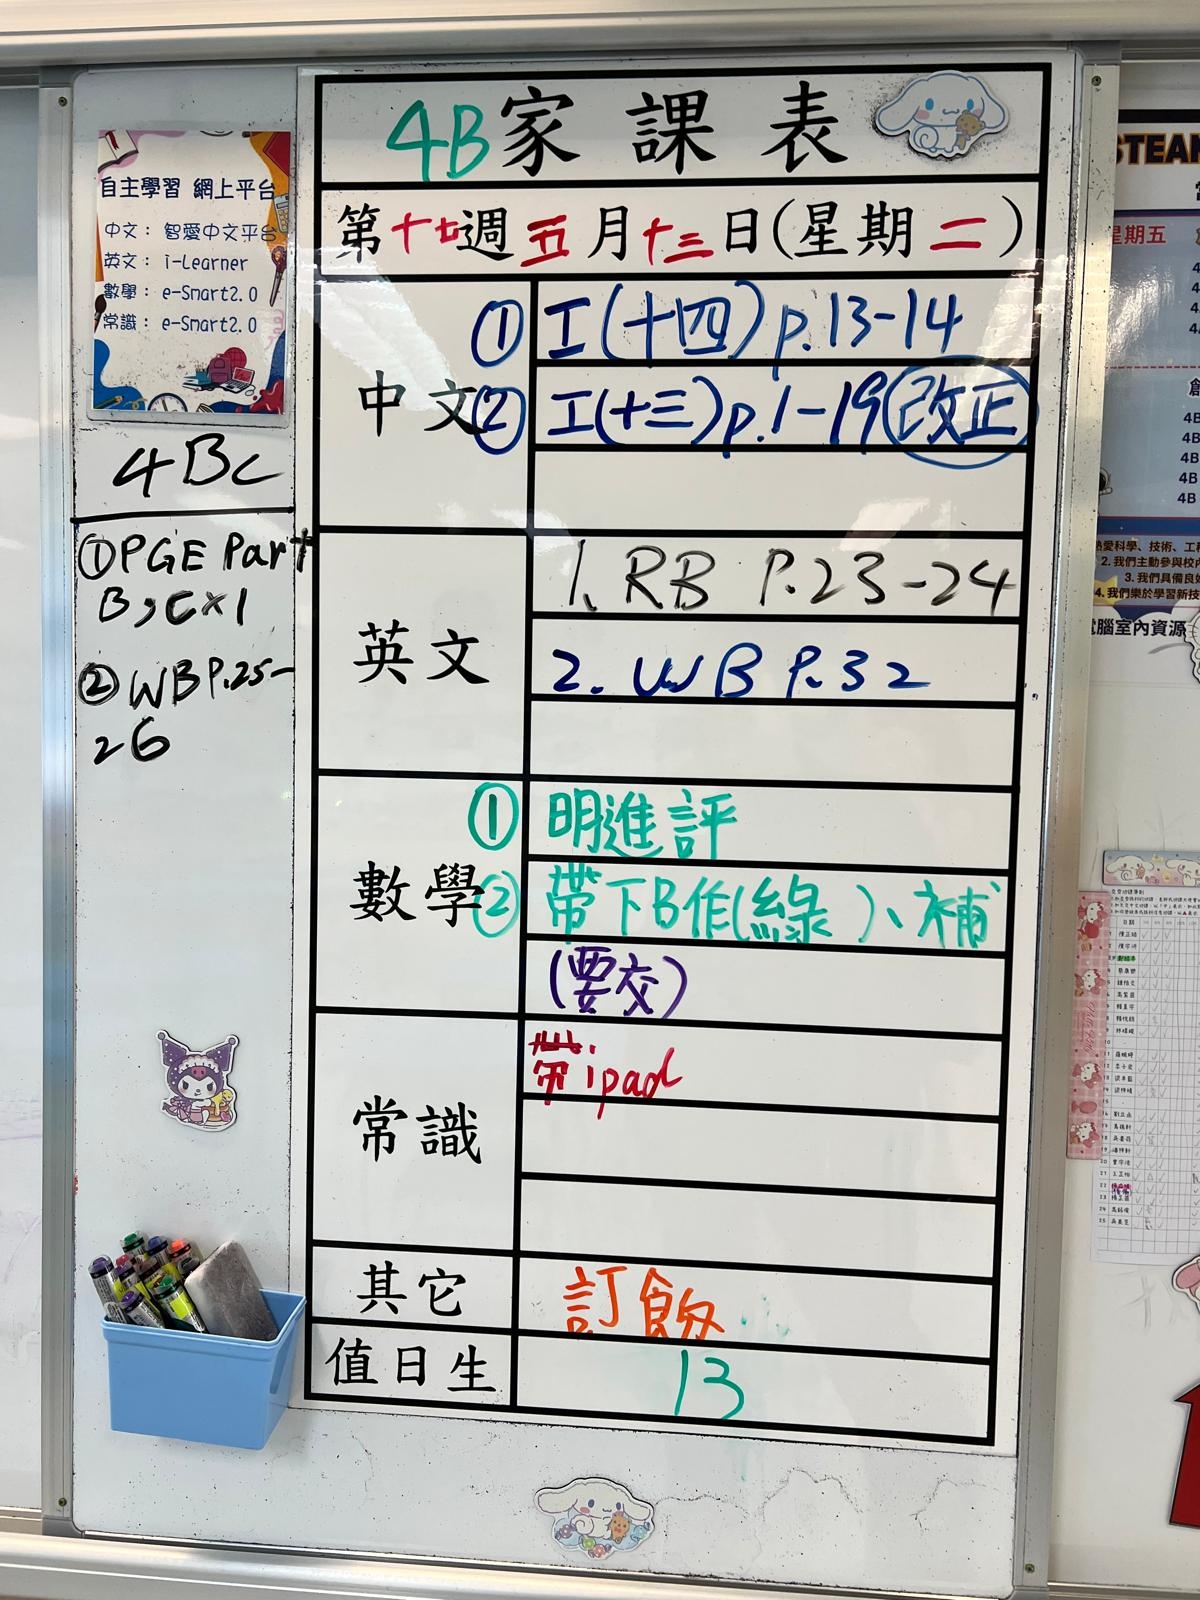 4B家課表
第十七週五月十三日(星期二)
中文
① 工(十四)p.13-14
② 工(十三)p.1-19 改正
英文
1. RB P.23-24
2. WB P.32
數學
① 明進評
② 帶下B作(綠)、補
(要交)
常識
帶ipad
其它
訂飯
值日生
13
自主學習 網上平台
中文：智愛中文平台
英文：i-Learner
數學：e-Smart2.0
常識：e-Smart2.0
4Bc
①PGE Part
B,C×1
②WB P.25-
26
STEAM
星期五
4B
4B
4B
4B
4B
2. 我們主動參與校內
3. 我們具備良好
4. 我們樂於學習新技
電腦室內資源